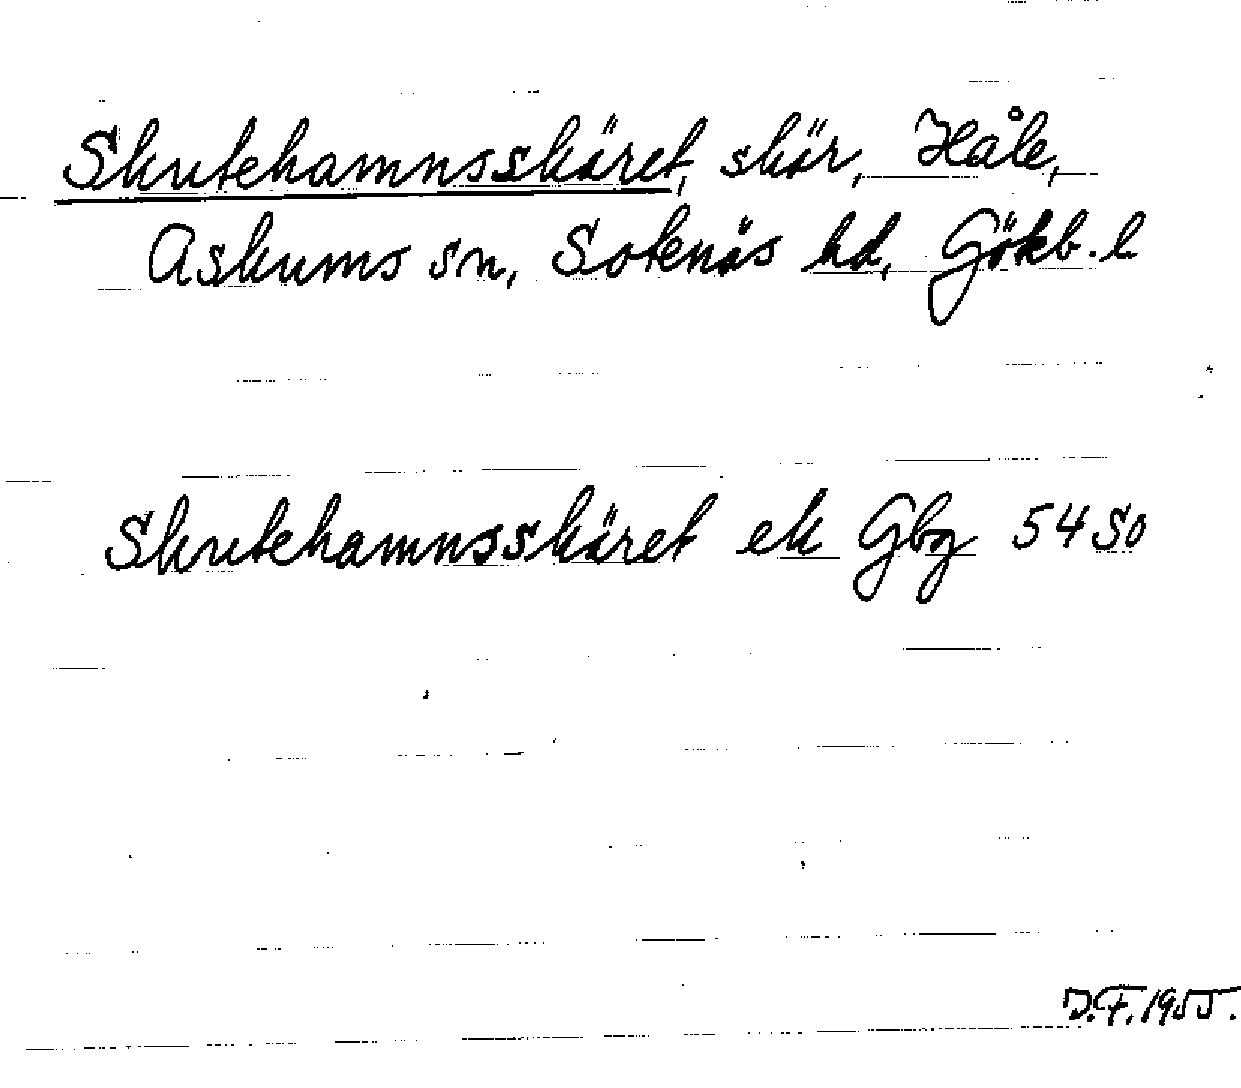 Skutehamnsskäret, skär, Håle,
Askums sn, Sotenäs hd, Gökb. l
Skutehamnsskäret ek Gbg 54 SO
D.F. 1955.